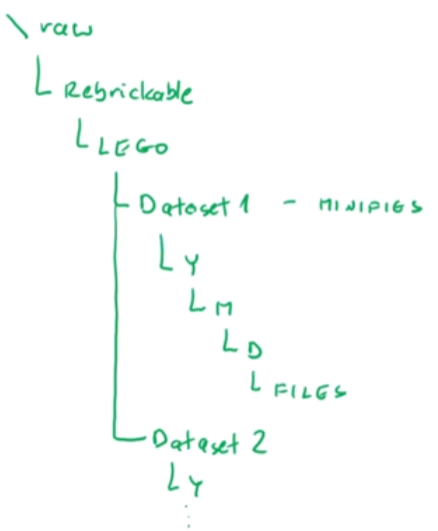 \ raw
Rebrickable
LEGO
Dataset 1 - MINIPIGS
Y
M
D
FILES
Dataset 2
Y